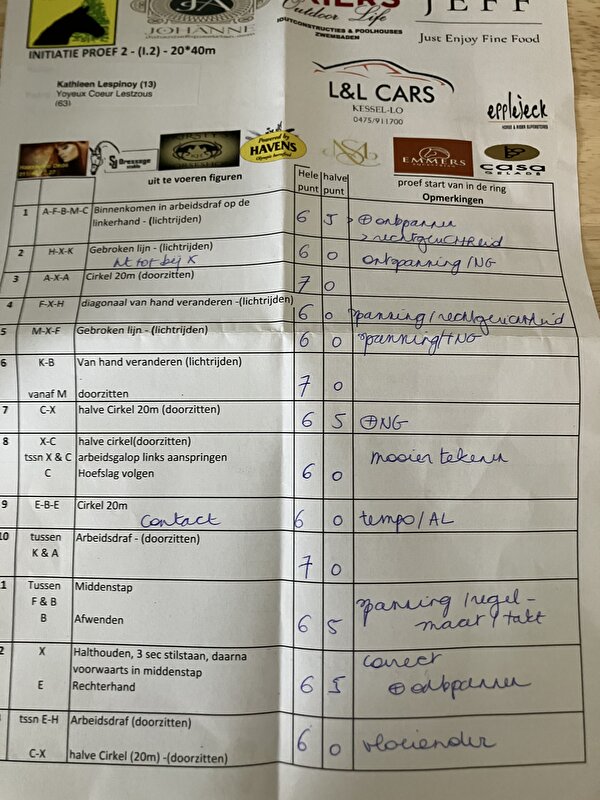 JA
JOHANNE
RIERS
Outdoor Life
HOUTCONSTRUCTIES & POOLHOUSES
ZWEMBADEN
JEFF
Just Enjoy Fine Food
INITIATIE PROEF 2 - (I.2) - 20*40m
Kathleen Lespinoy (13)
Yoyeux Coeur Lestzous
(63)
L&L CARS
KESSEL-LO
0475/911700
epplejeck
Dressage
Powered by
HAVENS
EMMERS
casa
GELADE
uit te voeren figuren
Hele punt
halve punt
proef start van in de ring
Opmerkingen
1 A-F-B-M-C Binnenkomen in arbeidsdraf op de linkerhand - (lichtrijden) 6 5 > ⊕ ontspannen
> rechtgerichtheid
2 H-X-K Gebroken lijn - (lichtrijden) 6 0 ontspanning / NG
tot bij X
3 A-X-A Cirkel 20m (doorzitten) 7 0
4 F-X-H diagonaal van hand veranderen -(lichtrijden) 6 0 spanning / rechtgerichtheid
5 M-X-F Gebroken lijn - (lichtrijden) 6 0 spanning / NG
6 K-B Van hand veranderen (lichtrijden)
vanaf M doorzitten 7 0
7 C-X halve Cirkel 20m (doorzitten) 6 5 ⊕ NG
8 X-C halve cirkel(doorzitten)
tssn X & C arbeidsgalop links aanspringen mooier tekenen
C Hoefslag volgen 6 0
9 E-B-E Cirkel 20m 6 0 tempo / AL
contact
10 tussen Arbeidsdraf - (doorzitten)
K & A 7 0
1 Tussen Middenstap
F & B spanning / regel-
B Afwenden 6 5 maat / takt
2 X Halthouden, 3 sec stilstaan, daarna correct
voorwaarts in middenstap
E Rechterhand 6 5 ⊕ ontspannen
tssn E-H Arbeidsdraf (doorzitten) 6 0 vloeiender
C-X halve Cirkel (20m) -(doorzitten)